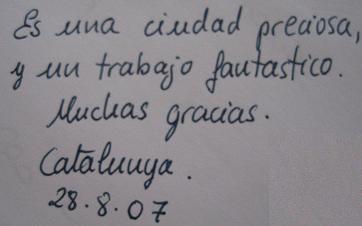 Es una ciudad preciosa,
y un trabajo fantastico.
Muchas gracias.
Catalunya.
28.8.07